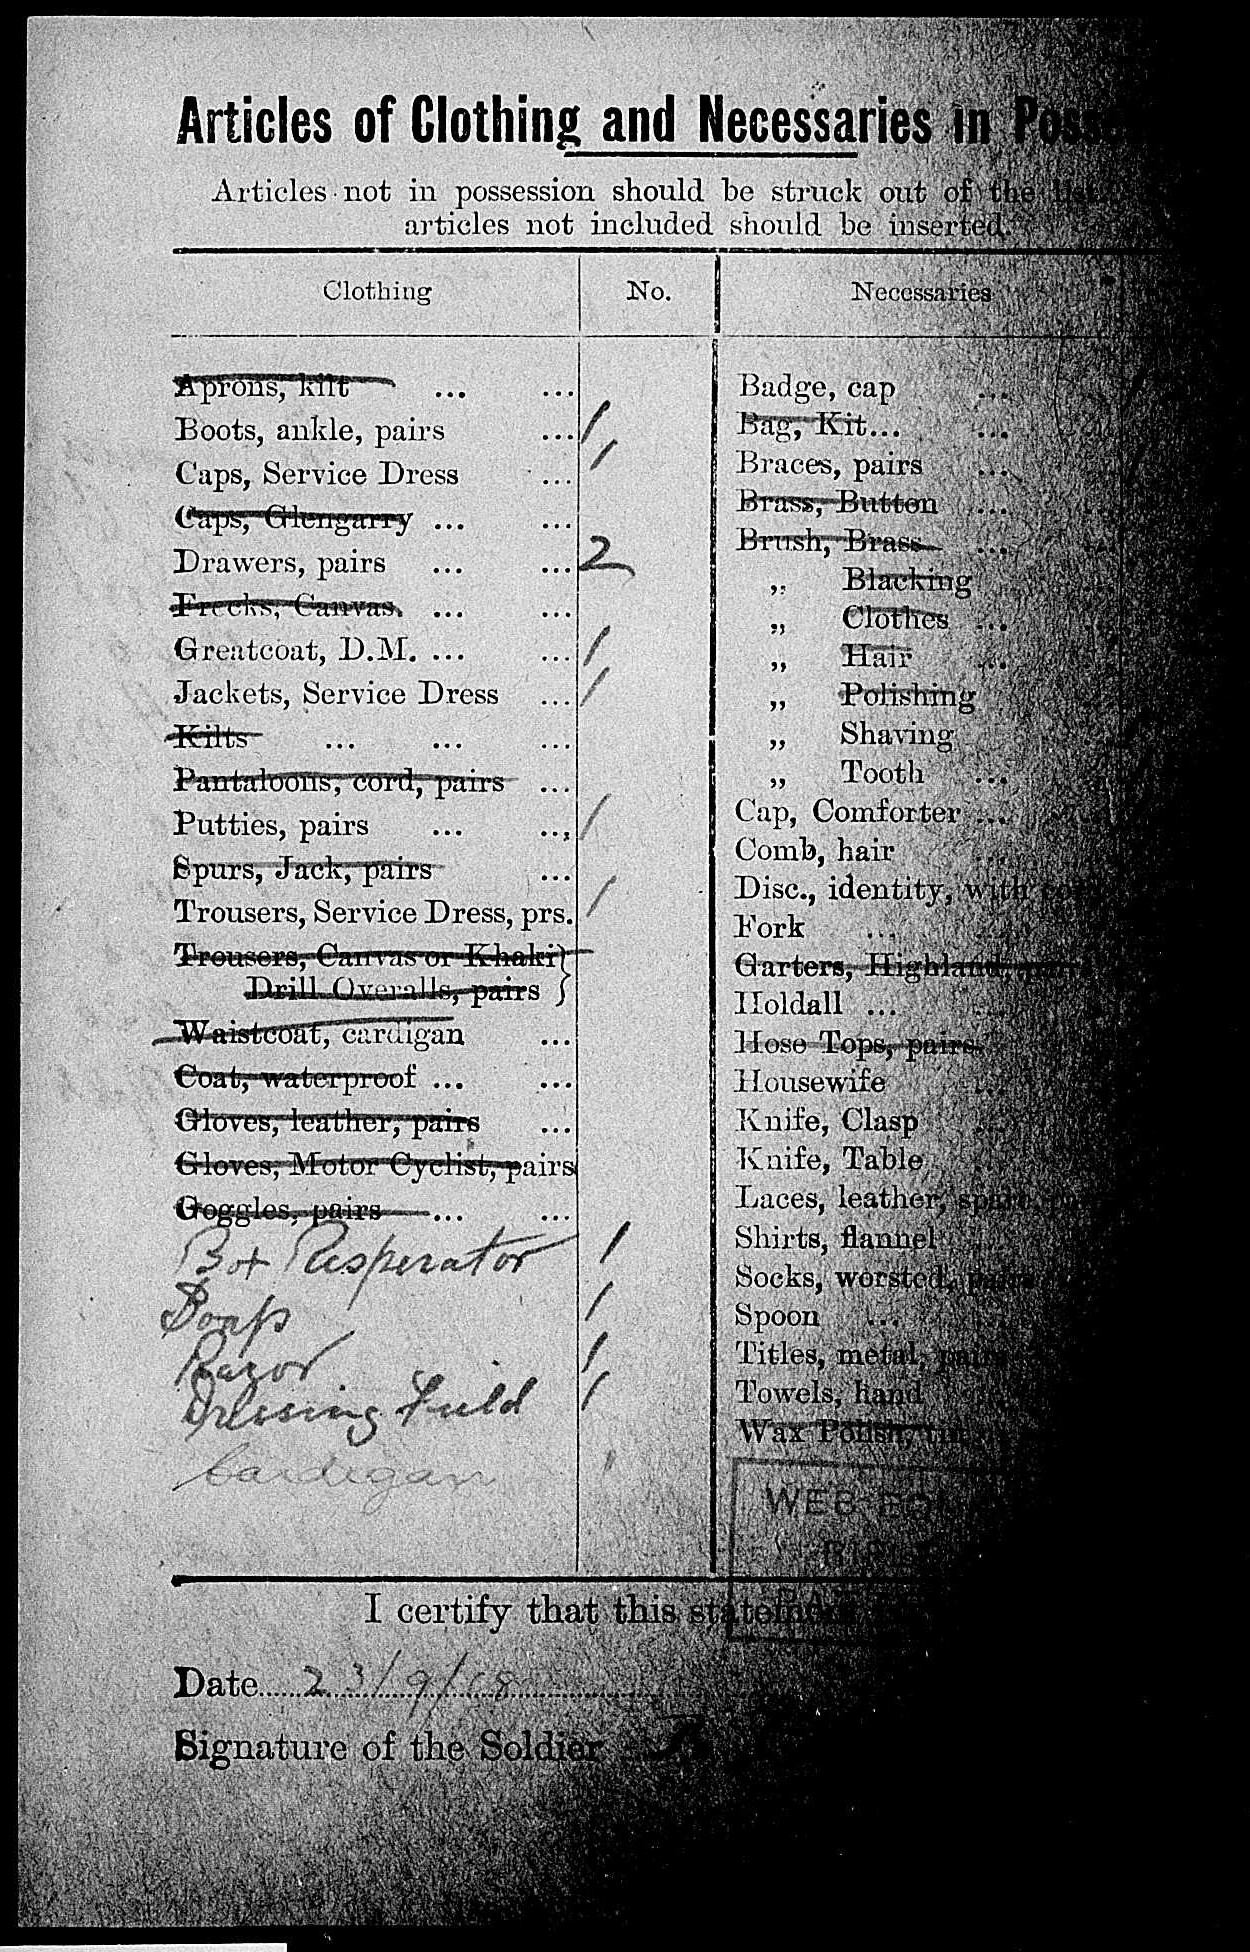 Articles of Clothing and Necessaries in
Articles not in possession should be struck out of the list
articles not included should be inserted.
Clothing No. Necessaries
Aprons, kilt ... ...
Boots, ankle, pairs ... 1
Caps, Service Dress ... 1
Caps, Glengarry ... ...
Drawers, pairs ... ... 2
Frocks, Canvas, ... ...
Greatcoat, D.M. ... ... 1
Jackets, Service Dress ... 1
Kilts ... ... ...
Pantaloons, cord, pairs ...
Putties, pairs ... ... 1
Spurs, Jack, pairs ...
Trousers, Service Dress, prs. 1
Trousers, Canvas or Khaki }
Drill Overalls, pairs }
Waistcoat, cardigan ...
Coat, waterproof ... ...
Gloves, leather, pairs ...
Gloves, Motor Cyclist, pairs
Goggles, pairs ... ...
Box Respirator 1
Soap 1
Razor 1
Dressing Field 1
Cardigan 1
Badge, cap ...
Bag, Kit... ...
Braces, pairs ...
Brass, Button ...
Brush, Brass ...
„ Blacking
„ Clothes ...
„ Hair ...
„ Polishing
„ Shaving
„ Tooth ...
Cap, Comforter ...
Comb, hair ...
Disc., identity, with
Fork ... ...
Garters, Highland, pairs
Holdall ... ...
Hose Tops, pairs
Housewife ...
Knife, Clasp ...
Knife, Table
Laces, leather, spare
Shirts, flannel
Socks, worsted, pairs
Spoon ...
Titles, metal, pairs
Towels, hand
Wax Polish,
I certify that this statement
Date 23/9/18
Signature of the Soldier